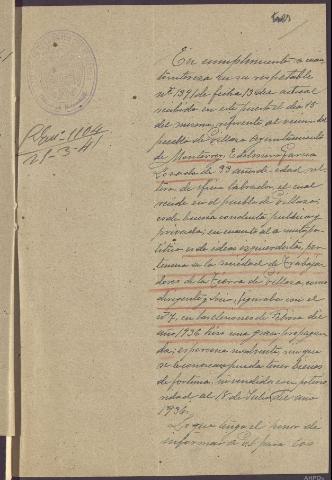 En cumplimiento a cuan
interesa en su respetable
nº 1391 de fecha 13 de actual
recibido en este puesto el dia 15
del mismo, referente al vecino del
pueblo de Villaza Ayuntamiento
de Monterrey, Garcia
Losada de 33 años de edad
labrador, el cual
reside en el pueblo de Villaza,
es de buena conducta publica y
privada; en cuanto a la
es de ideas izquierdistas, per
tenecia a la sociedad de Trabaja
dores de la Tierra de Villaza, como
figuraba con el
nº 7, en las elecciones de Febrero del
año 1936 hizo una gran propagan
da; es persona sin que
se le conozca pueda tener bienes
de fortuna, ni vendidos con poterio
ridad al 18 de Julio del año
1936.
Lo que tengo el honor de
informar a Vd para los
Rdo. 1104
21-3-41